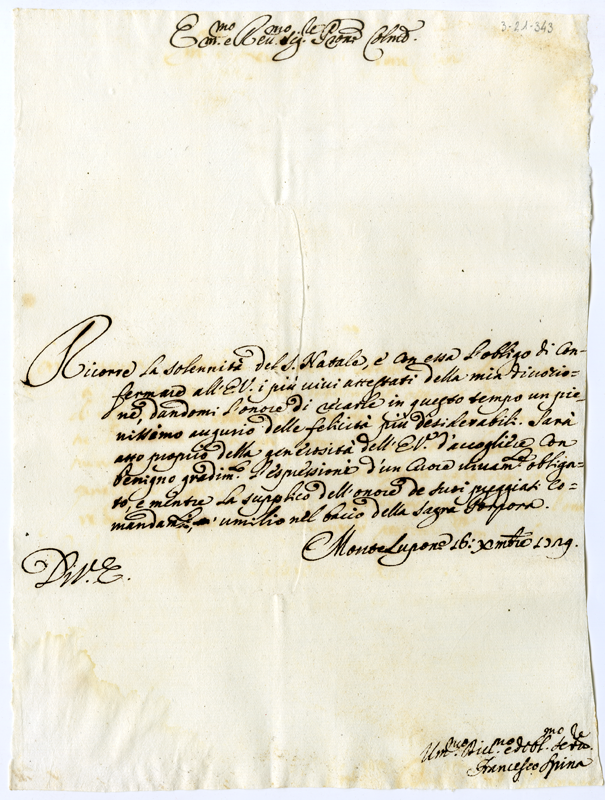 3-21-343
Em.mo e Reu.mo Sig.le Prone Colmo.
Ricorre la solennità del S. Natale, e con essa l'obligo di con-
fermare all'E.V. i più vivi attestati della mia divozio-
ne, dandomi l'onore di in questo tempo un pie-
nissimo augurio delle felicità più desiderabili. Sarà
atto proprio della generosità dell'E.V. d'accogliere con
benigno gradim.to l'espressione d'un Cuore vivam.te obliga-
to, e mentre la supplico dell'onore de suoi preggiati Co-
mandam.ti, m'umilio nel bacio della sagra Porpora.
Monte Lupone 16: Xmbre 1729.
Di V. E.
Um.mo Div.mo ed obl.mo Ser.re
Francesco Spina